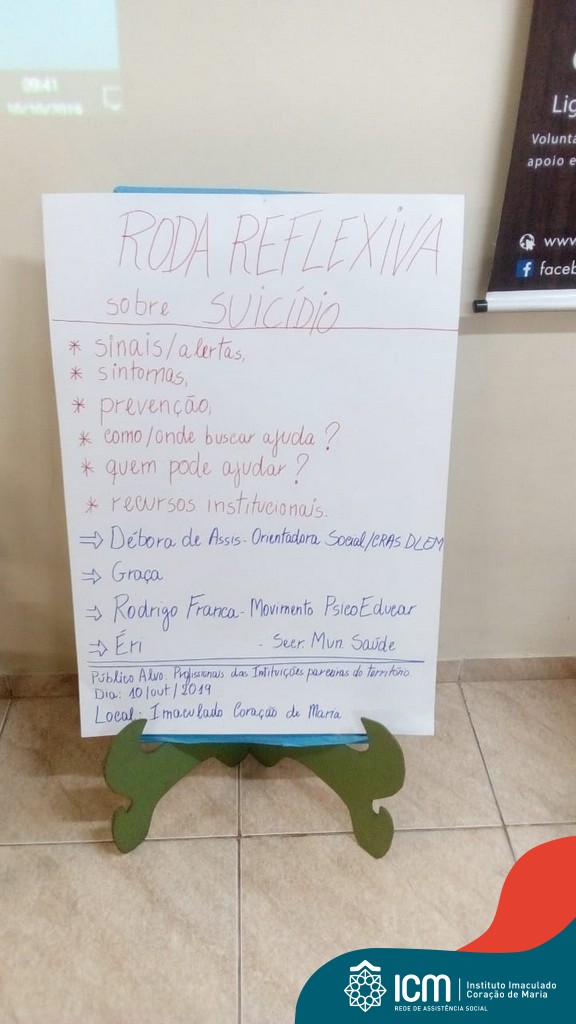 09:41
10/10/2019
Lig
Volunta
apoio e
www
faceb
RODA REFLEXIVA
sobre SUICÍDIO
* sinais/alertas,
* sintomas,
* prevenção,
* como/onde buscar ajuda?
* quem pode ajudar?
* recursos institucionais.
⇒ Débora de Assis - Orientadora Social/CRAS DLEM
⇒ Graça
⇒ Rodrigo Franca - Movimento PsicoEducar
⇒ Éri - Secr. Mun. Saúde
Público Alvo: Profissionais das Intituições parceiras do território.
Dia: 10/out/2019
Local: Imaculado Coração de Maria
ICM
Instituto Imaculado
Coração de Maria
REDE DE ASSISTÊNCIA SOCIAL